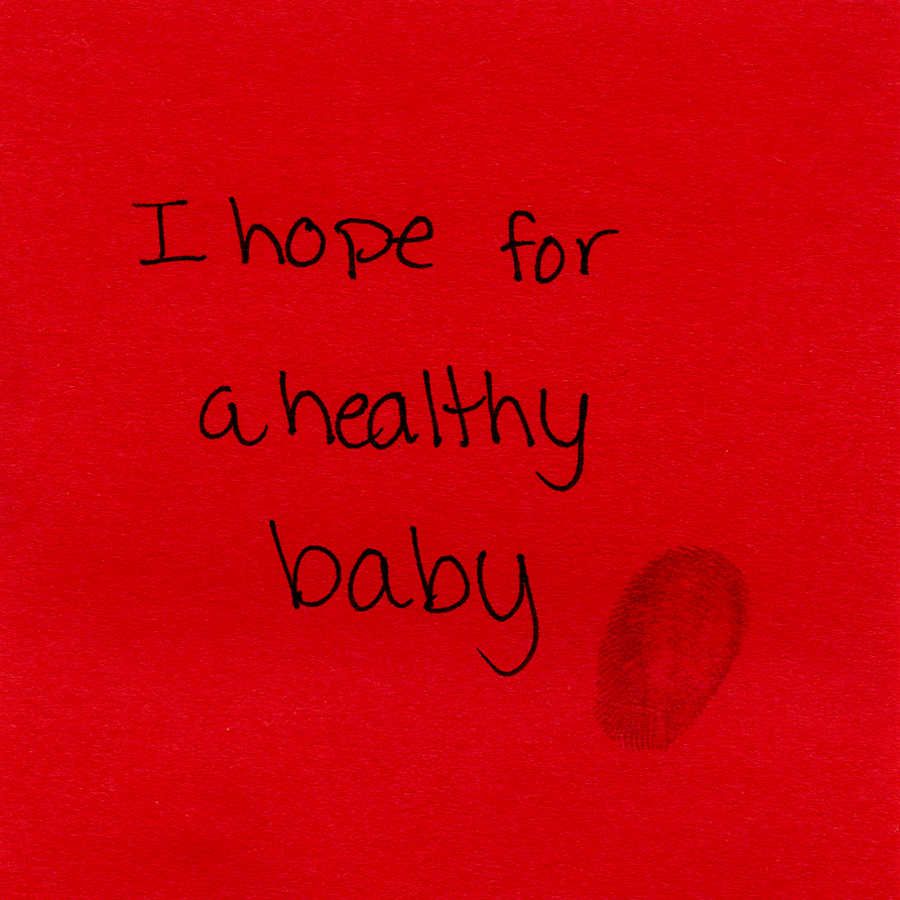 I hope for
a healthy
baby